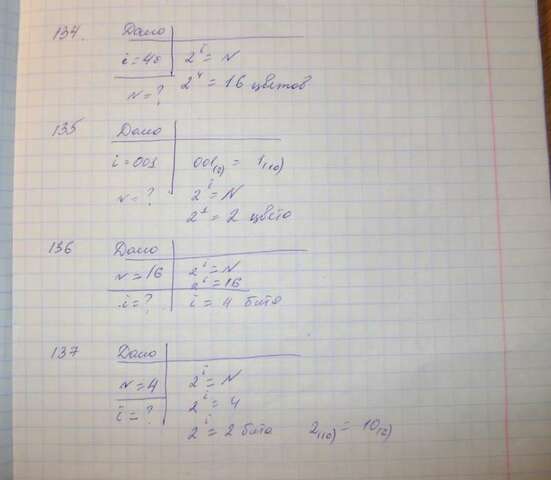 134. Дано
i = 4б 2^i = N
N = ? 2^4 = 16 цветов
135 Дано
i = 001 001(2) = 1(10)
N = ? 2^i = N
2^1 = 2 цвета
136 Дано
N = 16 2^i = N
2^i = 16
i = ? i = 4 бита
137 Дано
N = 4 2^i = N
i = ? 2^i = 4
2^i = 2 бита 2(10) = 10(2)